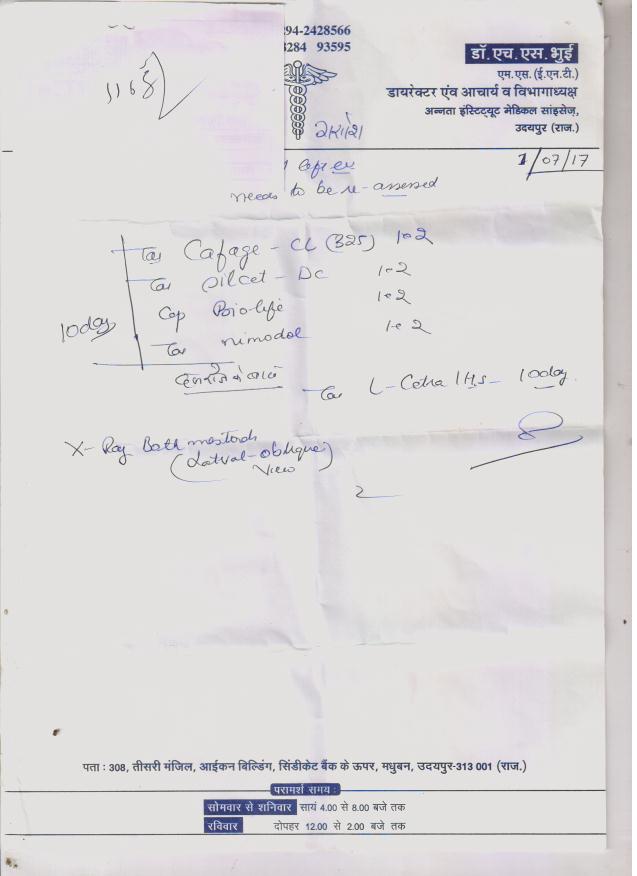 294-2428566
8284 93595
डॉ. एच. एस. भुई
एम.एस. (ई.एन.टी.)
डायरेक्टर एंव आचार्य व विभागाध्यक्ष
अनन्ता इंस्टिट्यूट मेडिकल साइंसेज़,
उदयपुर (राज.)
1/07/17
needs to be re-assessed
Tab Cafage - CL (325) 1-2
Tab Dilcet - Dc 1-2
Cap Bio-life 1-2
Tab nimodol 1-2
10day
Tab L-Cetra 1 HS - 10day
X-Ray Both mastoids
(Lateral-oblique
view)
पता : 308, तीसरी मंजिल, आईकन बिल्डिंग, सिंडीकेट बैंक के ऊपर, मधुबन, उदयपुर-313 001 (राज.)
परामर्श समय :
सोमवार से शनिवार सायं 4.00 से 8.00 बजे तक
रविवार दोपहर 12.00 से 2.00 बजे तक